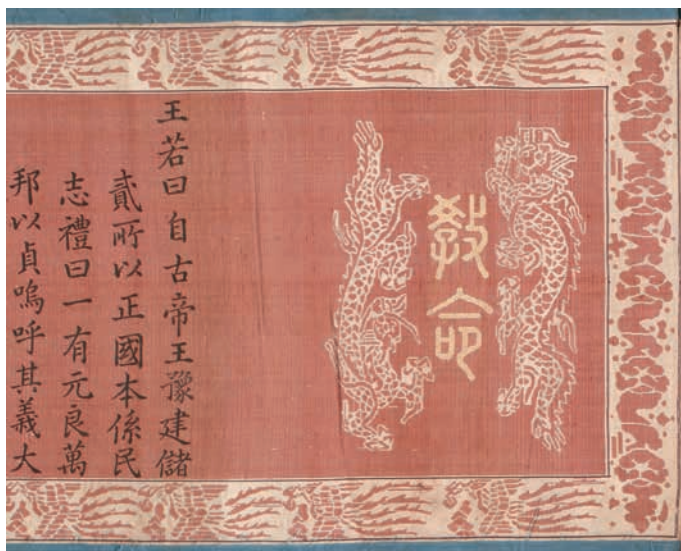 敎命
王若曰自古帝王豫建儲
貳所以正國本係民
志禮曰一有元良萬
邦以貞嗚呼其義大